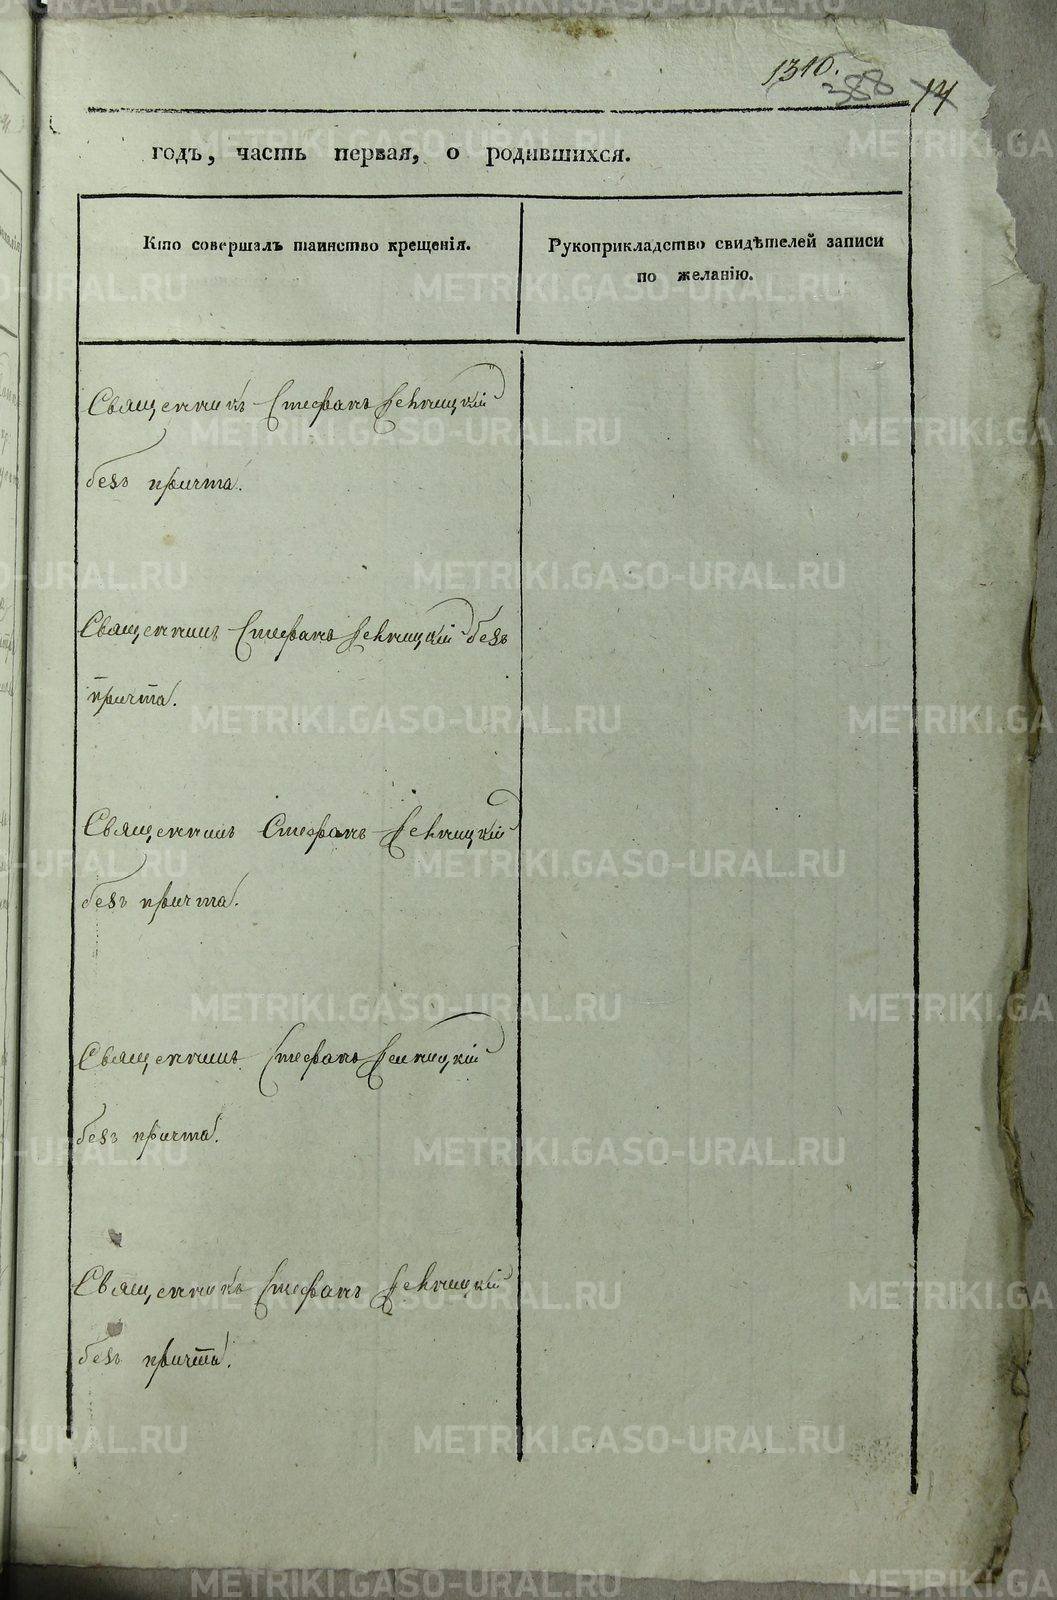 1310.
388
14
годъ, часть первая, о родившихся.
Кто совершалъ таинство крещенія.
Рукоприкладство свидѣтелей записи
по желанію.
Священникъ Стефанъ
безъ причта.
Священникъ Стефанъ безъ
причта.
Священникъ Стефанъ
безъ причта.
Священникъ Стефанъ
безъ причта.
Священникъ Стефанъ
безъ причта.
METRIKI.GASO-URAL.RU